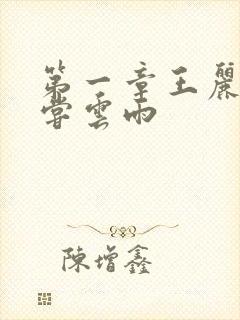 第一章王麗
嘗雲雨
陳增鑫